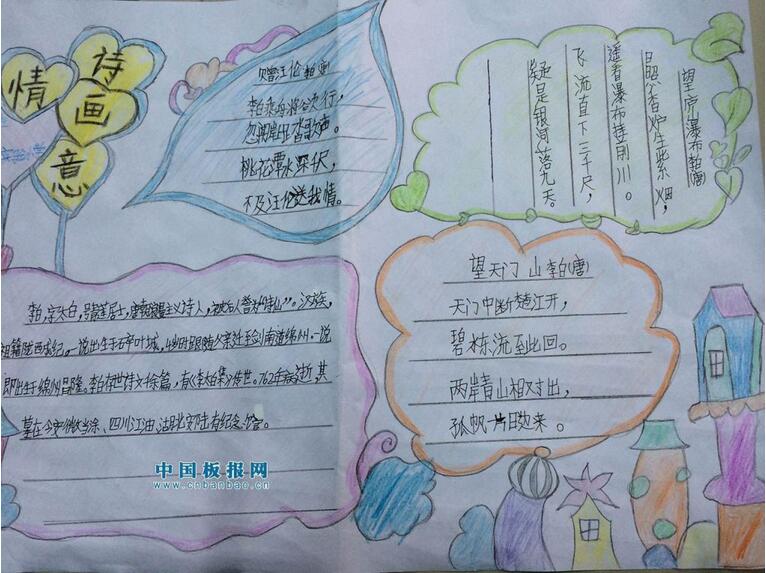 诗
情
画
意
赠汪伦 李白(唐)
李白乘舟将欲行,
忽闻岸上踏歌声。
桃花潭水深千尺,
不及汪伦送我情。
望庐山瀑布 李白(唐)
日照香炉生紫烟,
遥看瀑布挂前川。
飞流直下三千尺,
疑是银河落九天。
望天门山 李白(唐)
天门中断楚江开,
碧水东流至此回。
两岸青山相对出,
孤帆一片日边来。
李白,字太白,号青莲居士,唐朝浪漫主义诗人,被后人誉为“诗仙”。汉族,
祖籍陇西成纪。一说出生于碎叶城,4岁时跟随父亲迁至剑南道绵州。一说
即出生于绵州昌隆。李白存世诗文千余篇,有《李太白集》传世。762年病逝,其
墓在今安徽当涂、四川江油、湖北安陆有纪念馆。
中国板报网
www.cnbanbao.cn